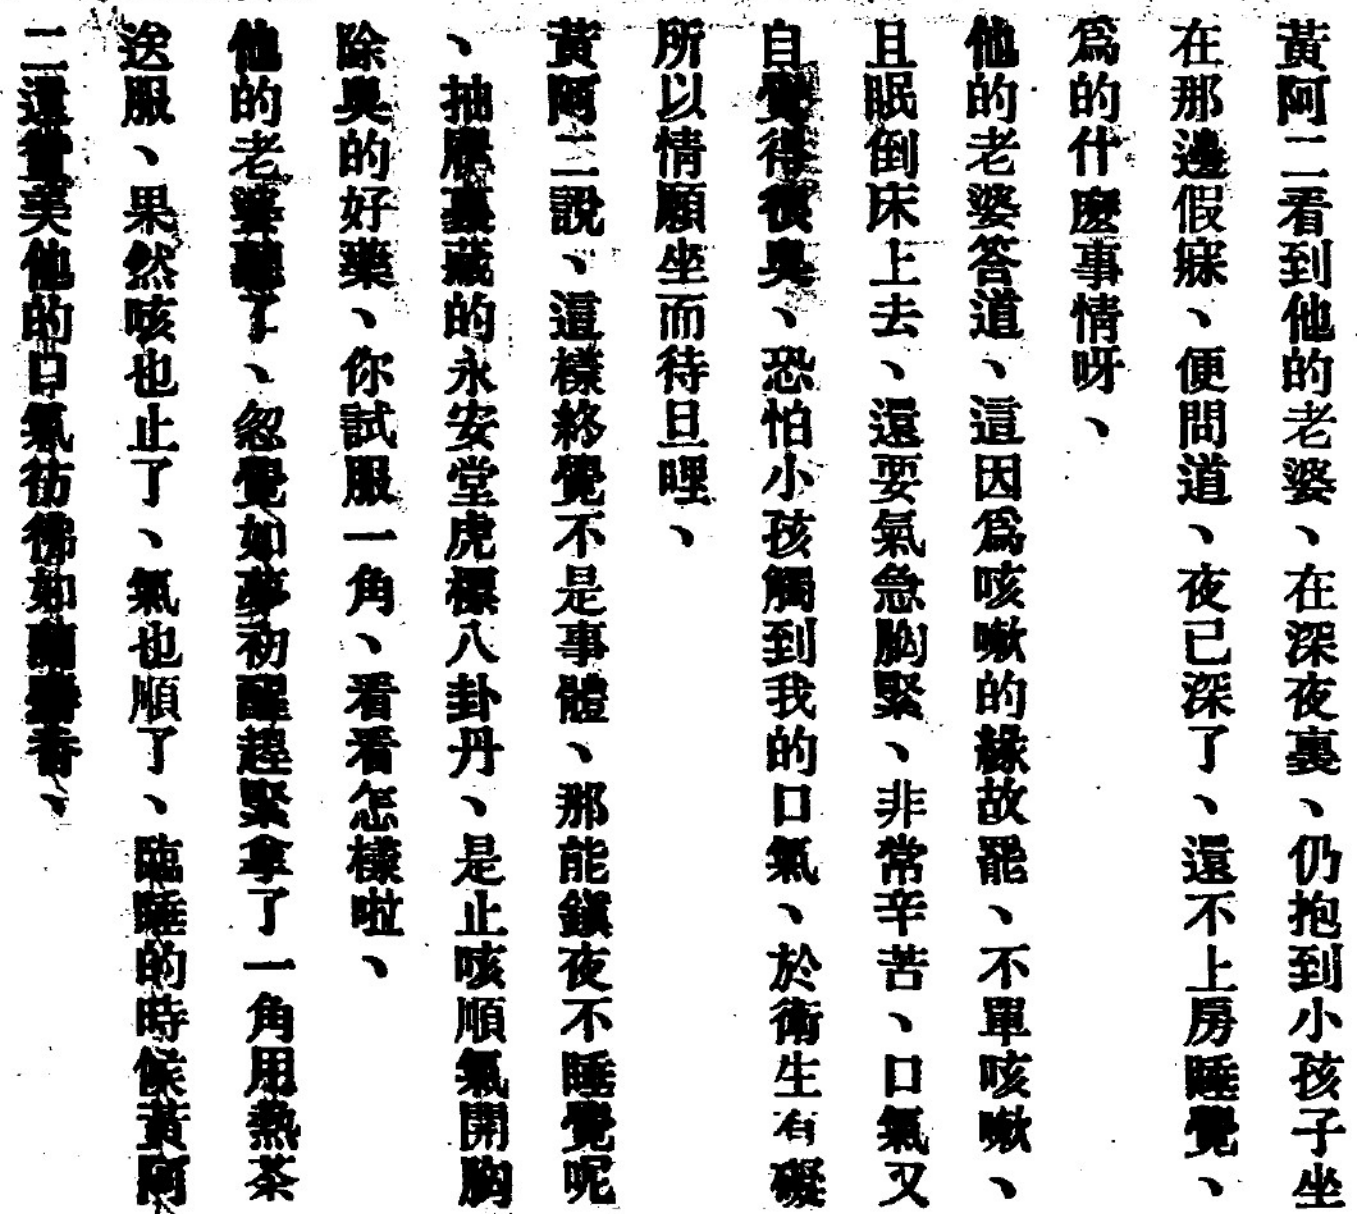 黃阿二看到他的老婆、在深夜裏、仍抱到小孩子坐
在那邊假寐、便問道、夜已深了、還不上房睡覺、
爲的什麼事情呀、
他的老婆答道、這因爲咳嗽的緣故罷、不單咳嗽、
且眠倒床上去、還要氣急胸緊、非常辛苦、口氣又
自覺得很臭、恐怕小孩觸到我的口氣、於衛生有礙
所以情願坐而待旦哩、
黃阿二說、這樣終覺不是事體、那能鎮夜不睡覺呢
、抽屜裏藏的永安堂虎標八卦丹、是止咳順氣開胸
除臭的好藥、你試服一角、看看怎樣啦、
他的老婆聽了、忽覺如夢初醒趕緊拿了一角用熱茶
送服、果然咳也止了、氣也順了、臨睡的時候黃阿
二還讚美他的口氣彷彿如蘭麝香、